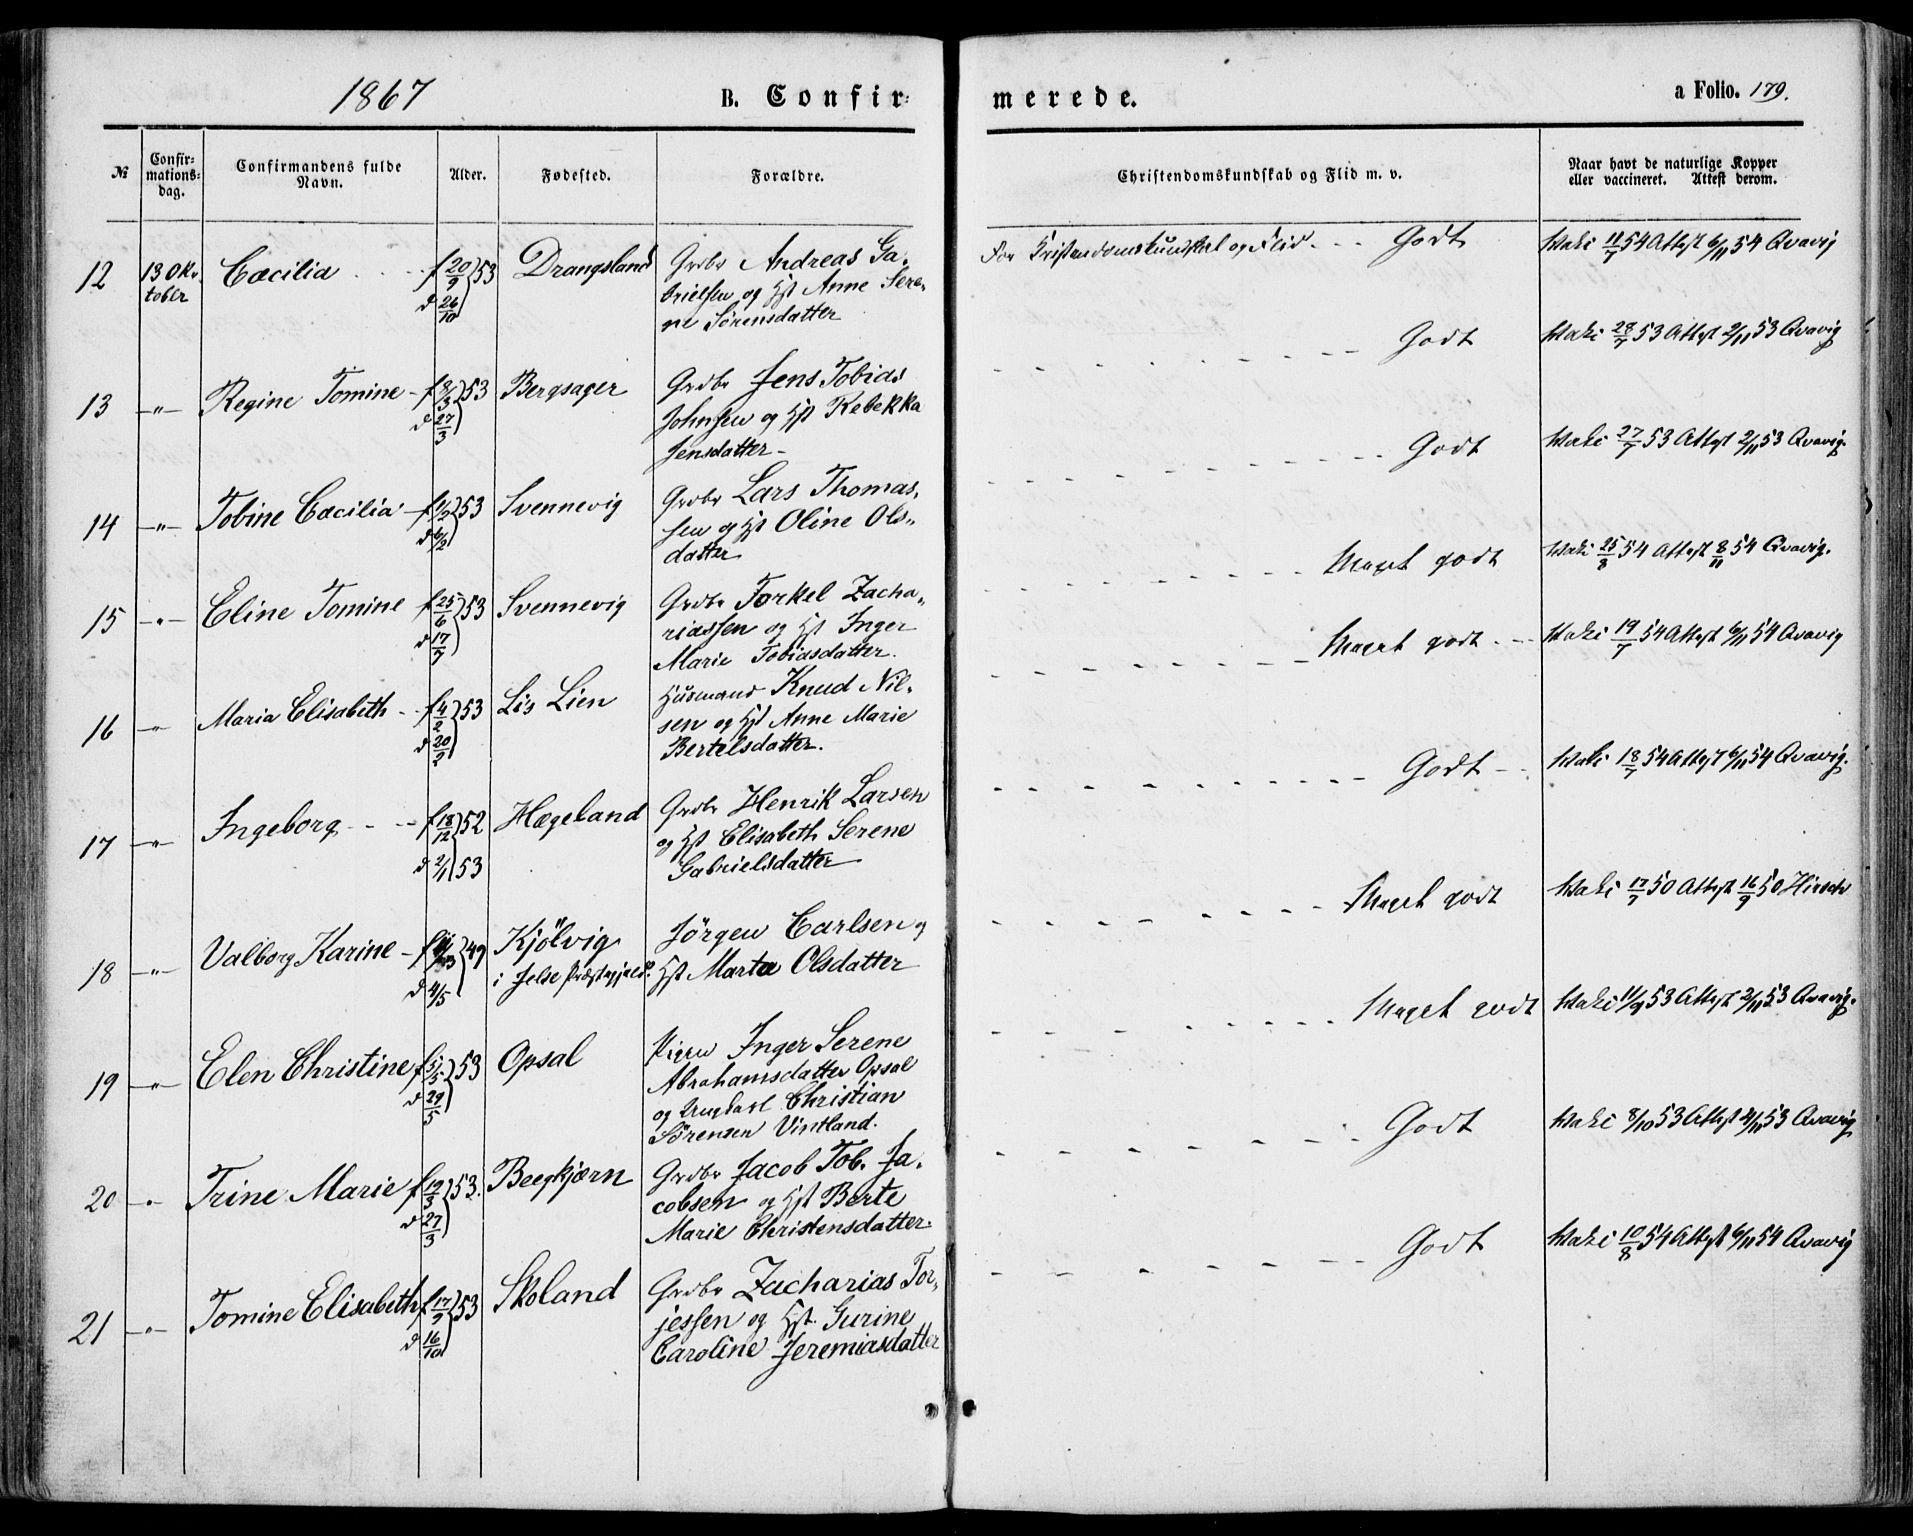 1867 B. Confir= merede. a Folio. 179.
№ Confir=mations=dag. Confirmandens fulde Navn. Alder. Fødested. Forældre. Christendomskundskab og Flid m. v. Naar havt de naturlige Kopper eller vaccineret. Attest derom.
12 13 Oktober Cæcilia f 20/9 d 26/10 } 53 Drangsland Grdbr Andreas Ga-
brielsen og Hst Anne Sere-
ne Sörensdatter
For Kristendomskundskab og Flid Godt Vakc 11/7 54 Attest 6/11 54 Qvavig
13 -"- Regine Tomine f 8/3 d 27/3 } 53 Bergsager Grdbr Jens Tobias
Johnsen og Hst Rebekka
Jensdatter
Godt Vakc 28/7 53 Attest 2/11 53 Qvavig
14 -"- Tobine Cæcilia f 1/2 d 6/2 } 53 Svennevig Grdbr Lars Thomas-
sen og Hst Oline Ols-
datter
Godt Vakc 27/7 53 Attest 2/11 53 Qvavig.
15 -"- Eline Tomine f 25/6 d 17/7 } 53 Svennevig Grdbr Torkel Zacha-
riassen og Hst Inger
Marie Tobiasdatter.
Meget godt Vakc 25/8 54 Attest 8/11 54 Qvavig.
16 -"- Maria Elisabeth f 4/2 d 20/2 } 53 Lis Lien Husmand Knud Nil-
sen og Hst Anne Marie
Bertelsdatter.
Meget godt Vakc 19/7 54 Attest 6/11 54 Qvavig
17 -"- Ingeborg f 18/12 } 52 d 2/1 } 53 Hægeland Grdbr Henrik Larsen
og Hst Elisabeth Serene
Gabrielsdatter
Godt Vakc 18/7 54 Attest 6/11 54 Qvavig.
18 -"- Valborg Karine d 4/5 } 49 Kjölvig
i Jelse Præstegjeld. Jørgen Carlsen og
Hst Marta Olsdatter
Meget godt Vakc 17/7 50 Attest 16/9 50 Hirsch
19 -"- Elen Christine f 5/5 d 29/5 } 53 Opsal Pigen Inger Serene
Abrahamsdatter Opsal
og Ungkarl Christian
Sörensen Vintland.
Meget godt Vakc 11/9 53 Attest 2/11 53 Qvavig.
20 " Trine Marie f 19/3 d 27/3 } 53. Beegkjærn Grdbr Jacob Tob. Ja-
cobsen og Hst Berte
Marie Christensdatter.
Godt Vakc 8/10 53 Attest 4/11 53 Qvavig
21 -"- Tomine Elisabeth f 17/9 d 16/10 } 53 Skoland Grdbr Zacharias Tor-
jessen og Hst. Gurine
Caroline Jeremiasdatter
Godt Vakc 10/8 54 Attest 6/11 54 Qvavig